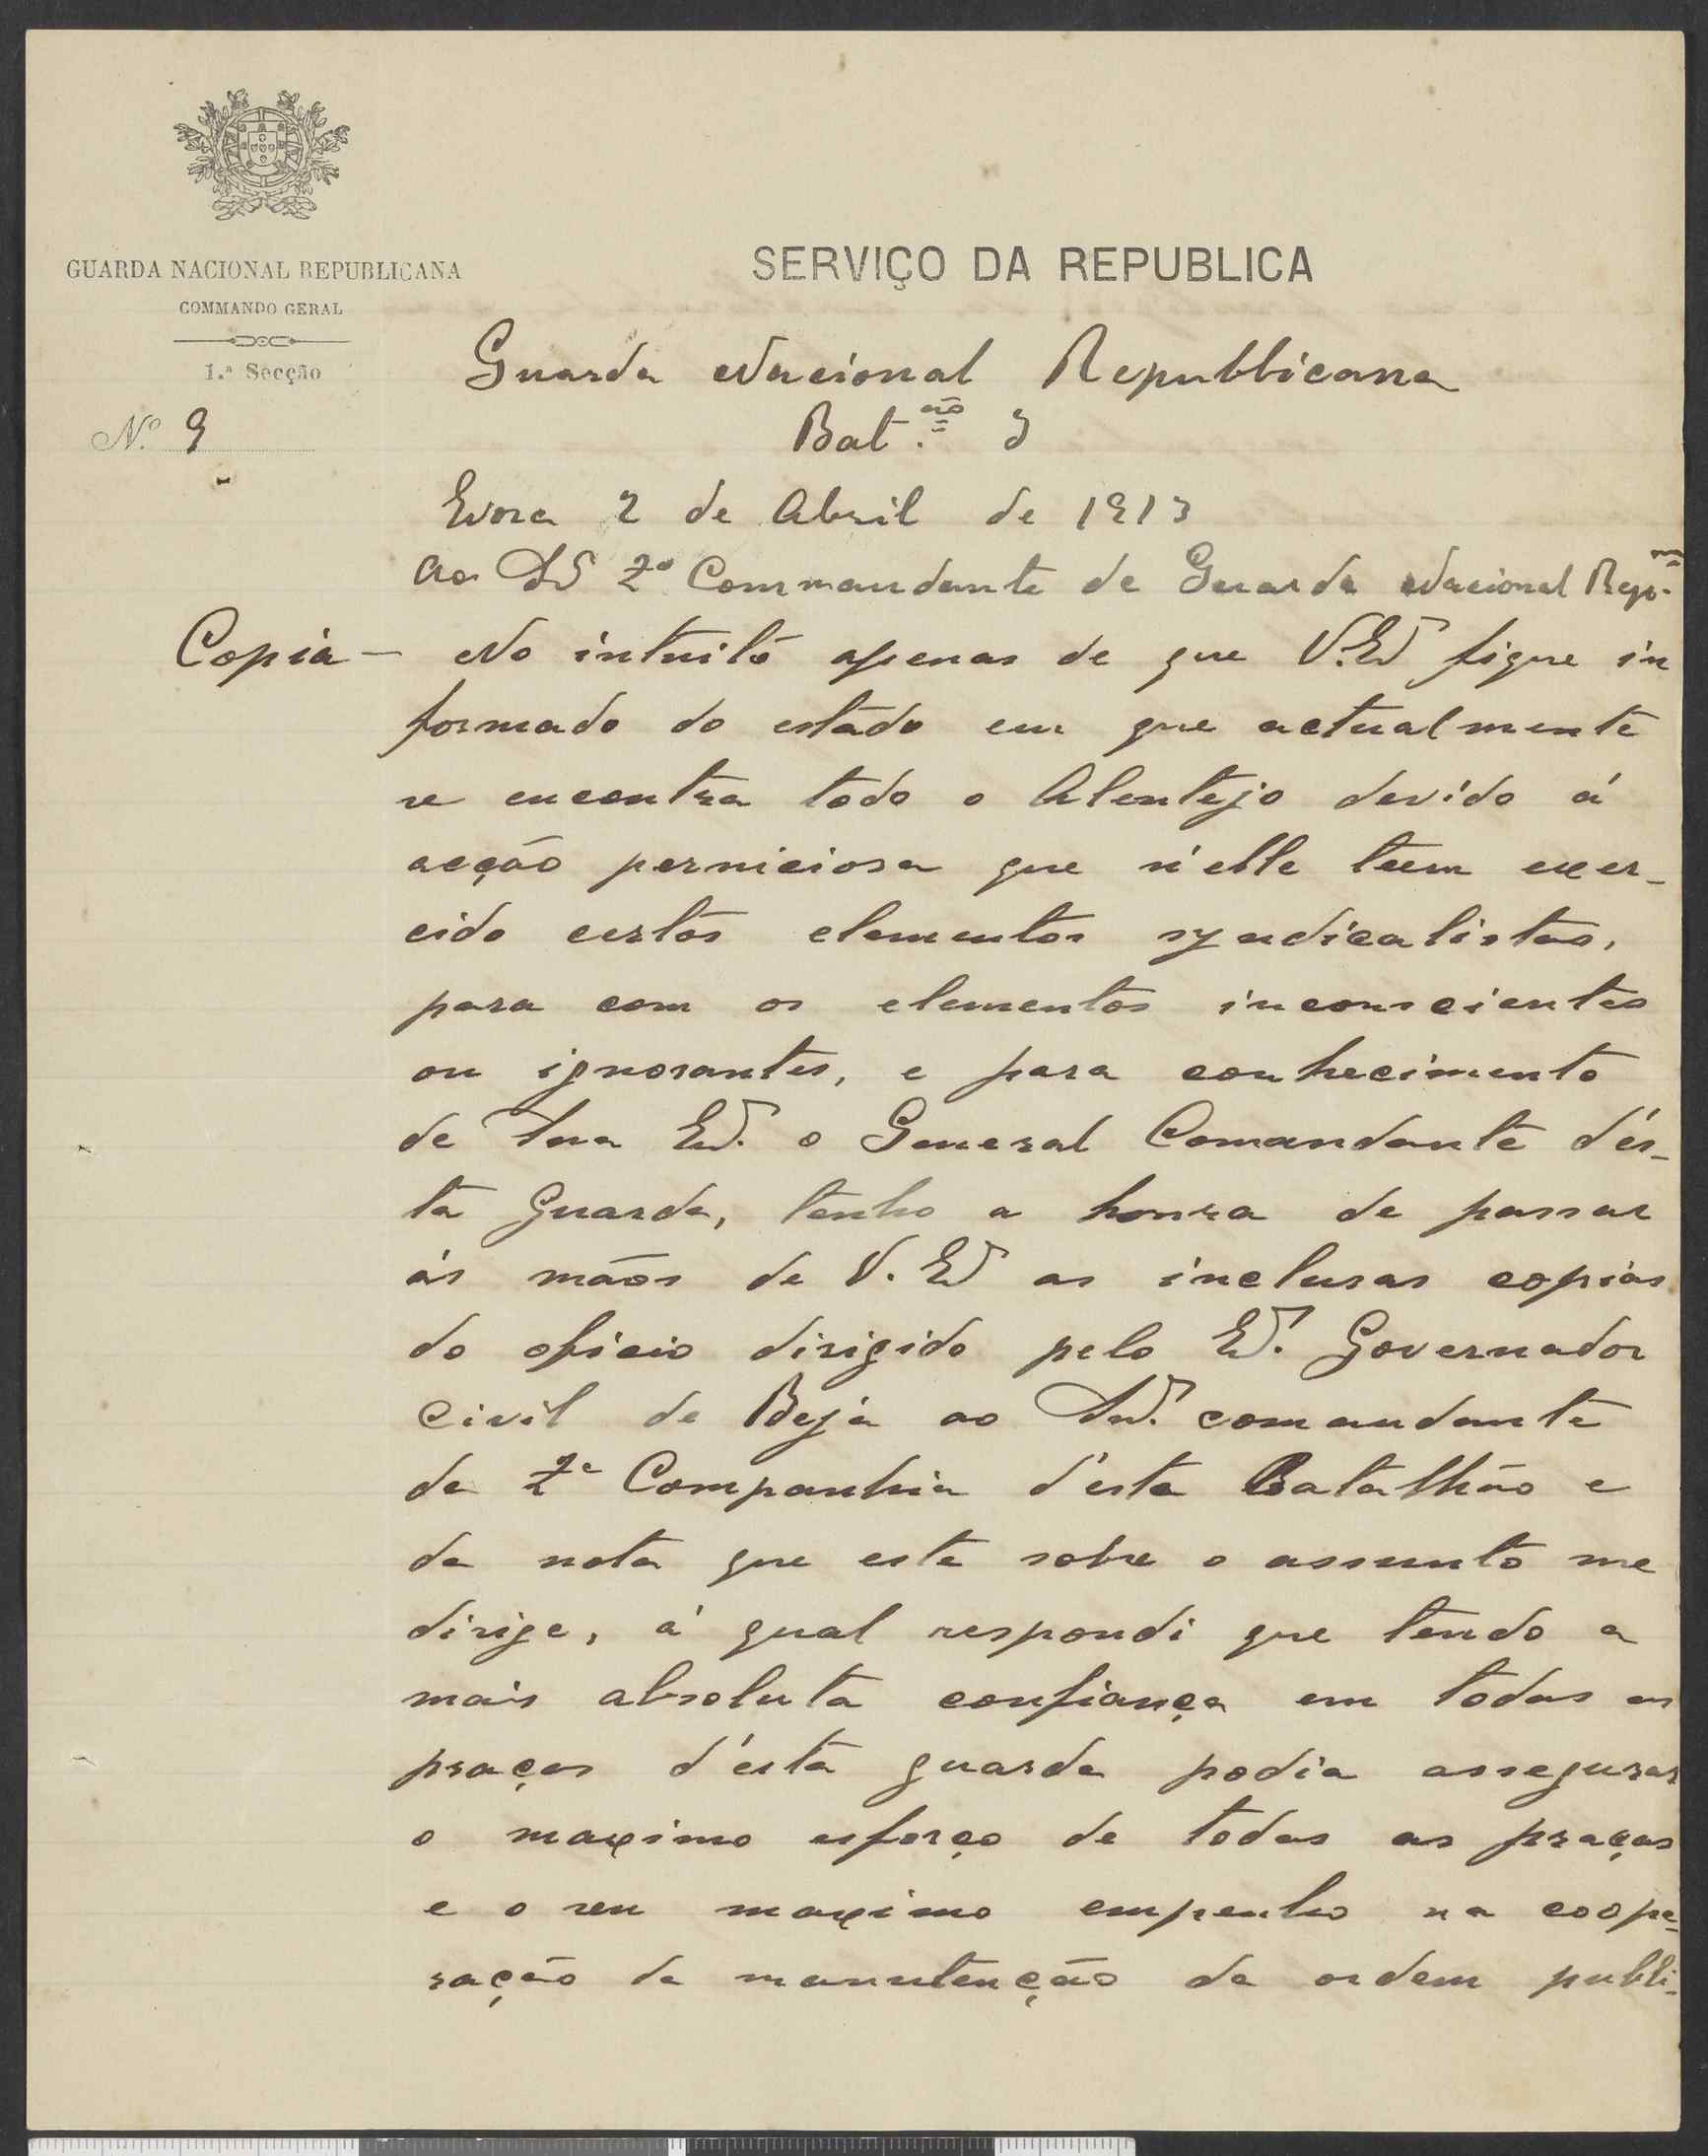 GUARDA NACIONAL REPUBLICANA
COMMANDO GERAL
1.ª Secção
N.º 9
SERVIÇO DA REPUBLICA
Guarda Nacional Republicana
Bat.ão 3
Evora 2 de Abril de 1913
Ao 2º Commandante de Guarda Nacional Rep.na
Copia — No intuito apenas de que V. Ex.ª fique in
formado do estado em que actualmente
se encontra todo o Alentejo devido á
acção perniciosa que n'elle teem exer-
cido certos elementos syndicalistas,
para com os elementos inconscientes
ou ignorantes, e para conhecimento
de Sua Ex.ª o General Comandante d'és-
ta Guarda, tenho a honra de passar
ás mãos de V. Ex.ª as inclusas copias
do oficio dirigido pelo Ex.º Governador
Civil de Beja ao Snr. comandante
da 2ª Companhia d'este Batalhão e
da nota que este sobre o assunto me
dirige, á qual respondi que tendo a
mais absoluta confiança em todas as
praças d'ésta guarda podia assegurar
o maximo esforço de todas as praças
e o seu maximo empenho na coope-
ração da manutenção da ordem publi-